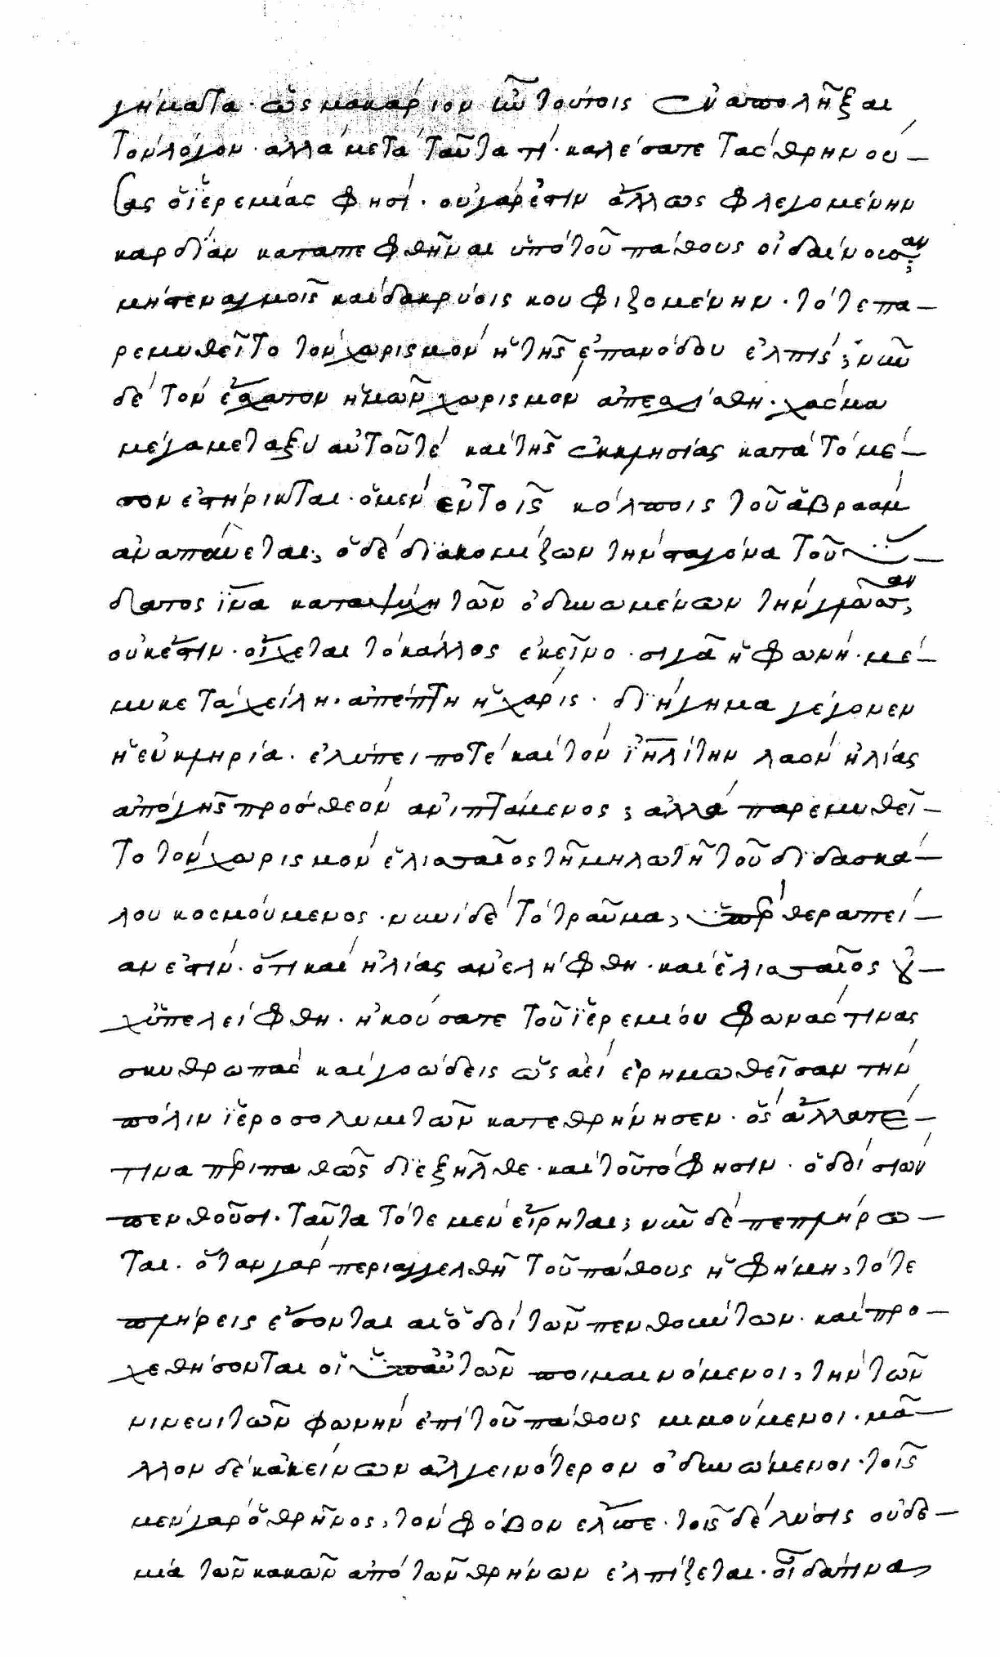 γήματα· ὡς μακάριον ἦν τούτοις ἐναπολῆξαι
τὸν λόγον· ἀλλὰ μετὰ ταῦτα τί· καλέσατε τὰς θρηνού-
σας ὁ ἱερεμίας φησί· οὐ γὰρ ἔστιν ἄλλως φλεγομένην
καρδίαν καταπεφθῆναι ὑπὸ τοῦ πάθους οἰδαίνουσαν,
μὴ στεναγμοῖς καὶ δακρύσις κουφιζομένην· τότε πα-
ρεμυθεῖτο τὸν χωρισμὸν ἡ τῆς ἐπανόδου ἐλπίς, νῦν
δὲ τὸν ἔσχατον ἡμῶν χωρισμὸν ἀπεσχίσθη· χάσμα
μέγα μεταξὺ αὐτοῦ τὲ καὶ τῆς ἐκκλησίας κατὰ τὸ μέ-
σον ἐστήρικται· ὁ μὲν ἐν τοῖς κόλποις τοῦ ἀβραὰμ
ἀναπαύεται, ὁ δὲ διακομίζων τὴν σταγόνα τοῦ ὕ-
δατος ἵνα καταψύχη τῶν ὀδυνωμένων τὴν γλῶσσαν,
οὐκ ἔστιν· οἴχεται τὸ κάλλος ἐκεῖνο· σιγᾶ ἡ φωνή· μέ-
μυκε τὰ χείλη· ἀπέπτη ἡ χάρις· διήγημα γέγονεν
ἡ εὐκληρία· ἐλύπει ποτὲ καὶ τὸν ἰηλίτην λαὸν ἠλίας
ἀπὸ γῆς πρὸς θεὸν ἀνιπτάμενος; ἀλλὰ παρεμυθεῖ-
το τὸν χωρισμὸν ἐλισσαῖος τῆ μηλωτῆ τοῦ διδασκά-
λου κοσμούμενος· νυνὶ δὲ τὸ τραῦμα, ὑπὲρ θεραπεί-
αν ἐστίν· ὅτι καὶ ἠλίας ἀνελήφθη· καὶ ἐλισσαῖος οὐ-
χ ὑπελείφθη· ἠκούσατε τοῦ ἱερεμίου φωνάς τινας
σκυθρωπὰς καὶ γοώδεις ὡς ἀεὶ ἐρημωθεῖσαν τὴν
πόλιν ἱεροσολυμιτῶν κατεθρήνησεν· ὃς ἄλλα τέ
τινα περιπαθῶς διεξῆλθε· καὶ τοῦτό φησιν· ὁδοὶ σιὼν
πενθοῦσι· ταῦτα τότε μὲν εἴρηται, νῦν δὲ πεπλήρω-
ται· ὅταν γὰρ περιαγγελθῆ τοῦ πάθους ἡ φήμη, τότε
πλήρεις ἔσονται αἱ ὁδοὶ τῶν πενθούντων· καὶ προ-
χεθήσονται οἱ ὑπ' αὐτῶν ποιμαινόμενοι, τὴν τῶν
νινευιτῶν φωνὴν ἐπὶ τοῦ πάθους μιμούμενοι· μᾶ-
λλον δὲ κἀκείνων ἀλγεινότερον ὀδυνώμενοι· τοῖς
μὲν γὰρ ὁ θρῆνος, τὸν φόβον ἔλυσε· τοῖς δὲ λύσις οὐδε-
μία τῶν κακῶν ἀπὸ τῶν θρήνων ἐλπίζεται· οἶδα τινα,